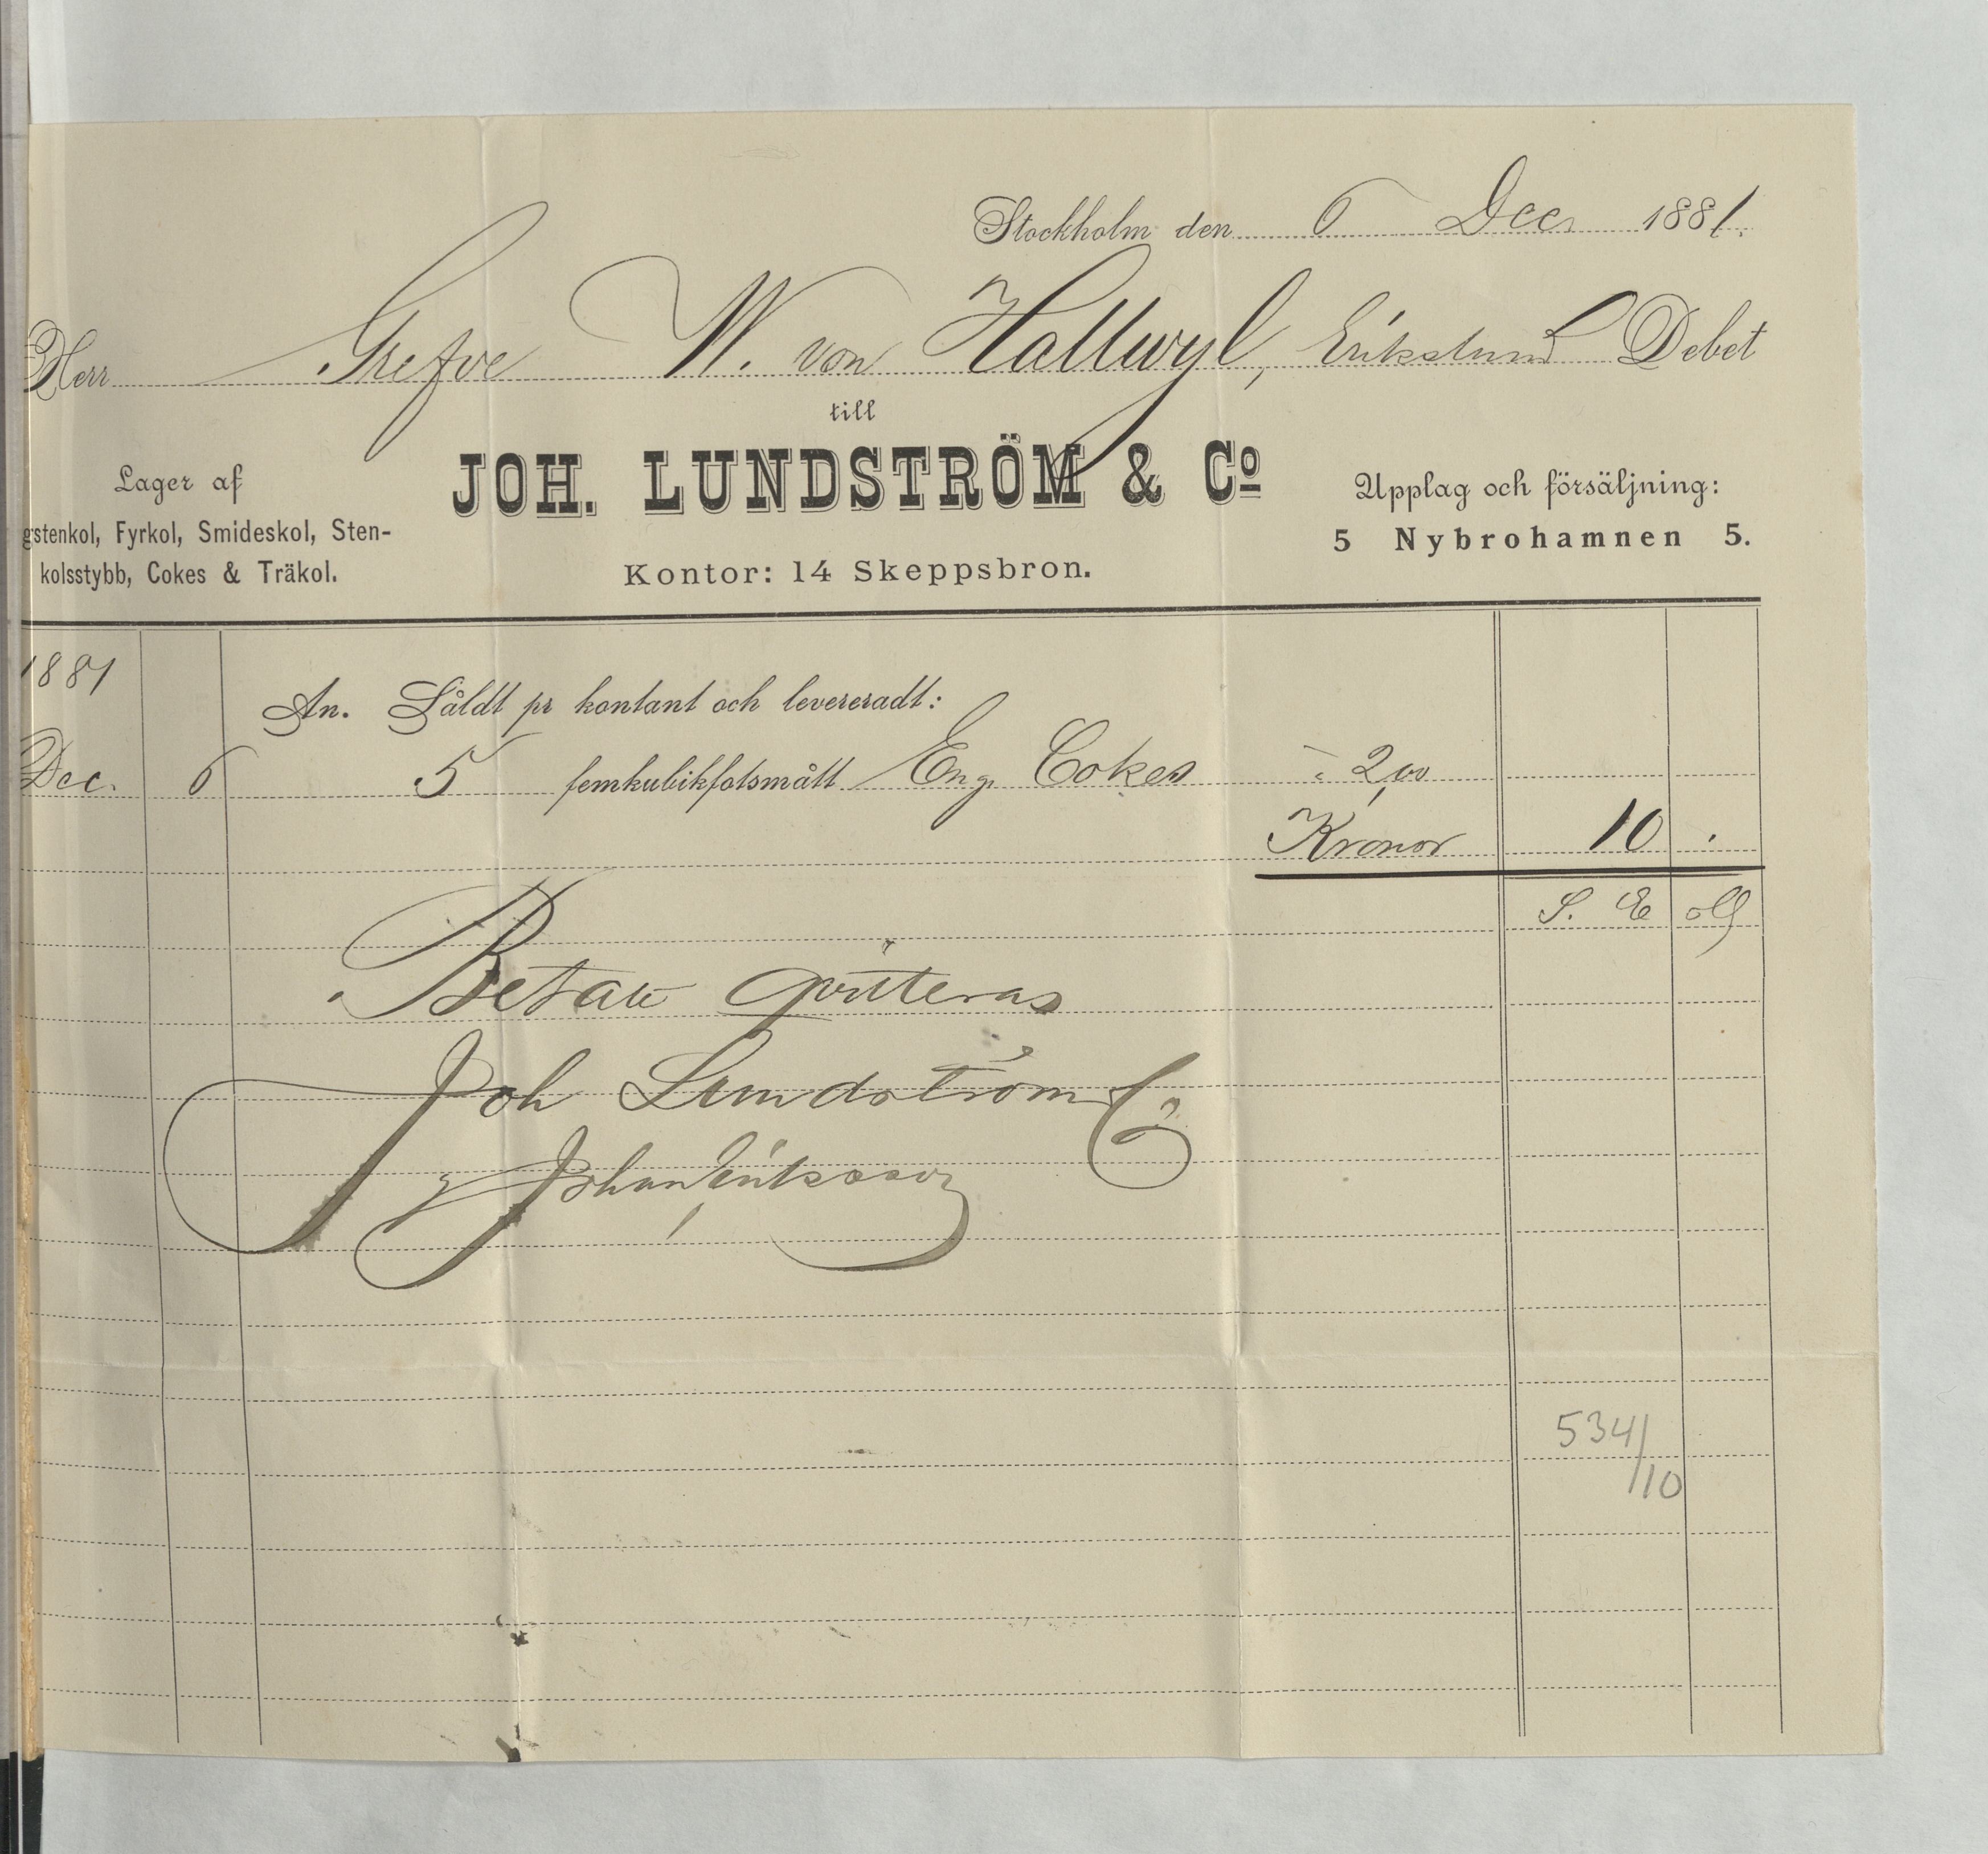 Stockholm den 6 Dec. 1881.
Herr Grefve W. von Hallwyl, Erikslund Debet
till
JOH. LUNDSTRÖM & Co
Lager af
gstenkol, Fyrkol, Smideskol, Sten-
kolsstybb, Cokes & Träkol.
Kontor: 14 Skeppsbron.
Upplag och försäljning:
5 Nybrohamnen 5.
1881
An. Såldt pr kontant och levereradt:
Dec. 6 5 femkubikfotsmått Eng. Cokes à 2,00
Kronor 10 .
S. E. o G
Betalt qvitteras
Joh Lundström & Co
Johan Eriksson
534/10